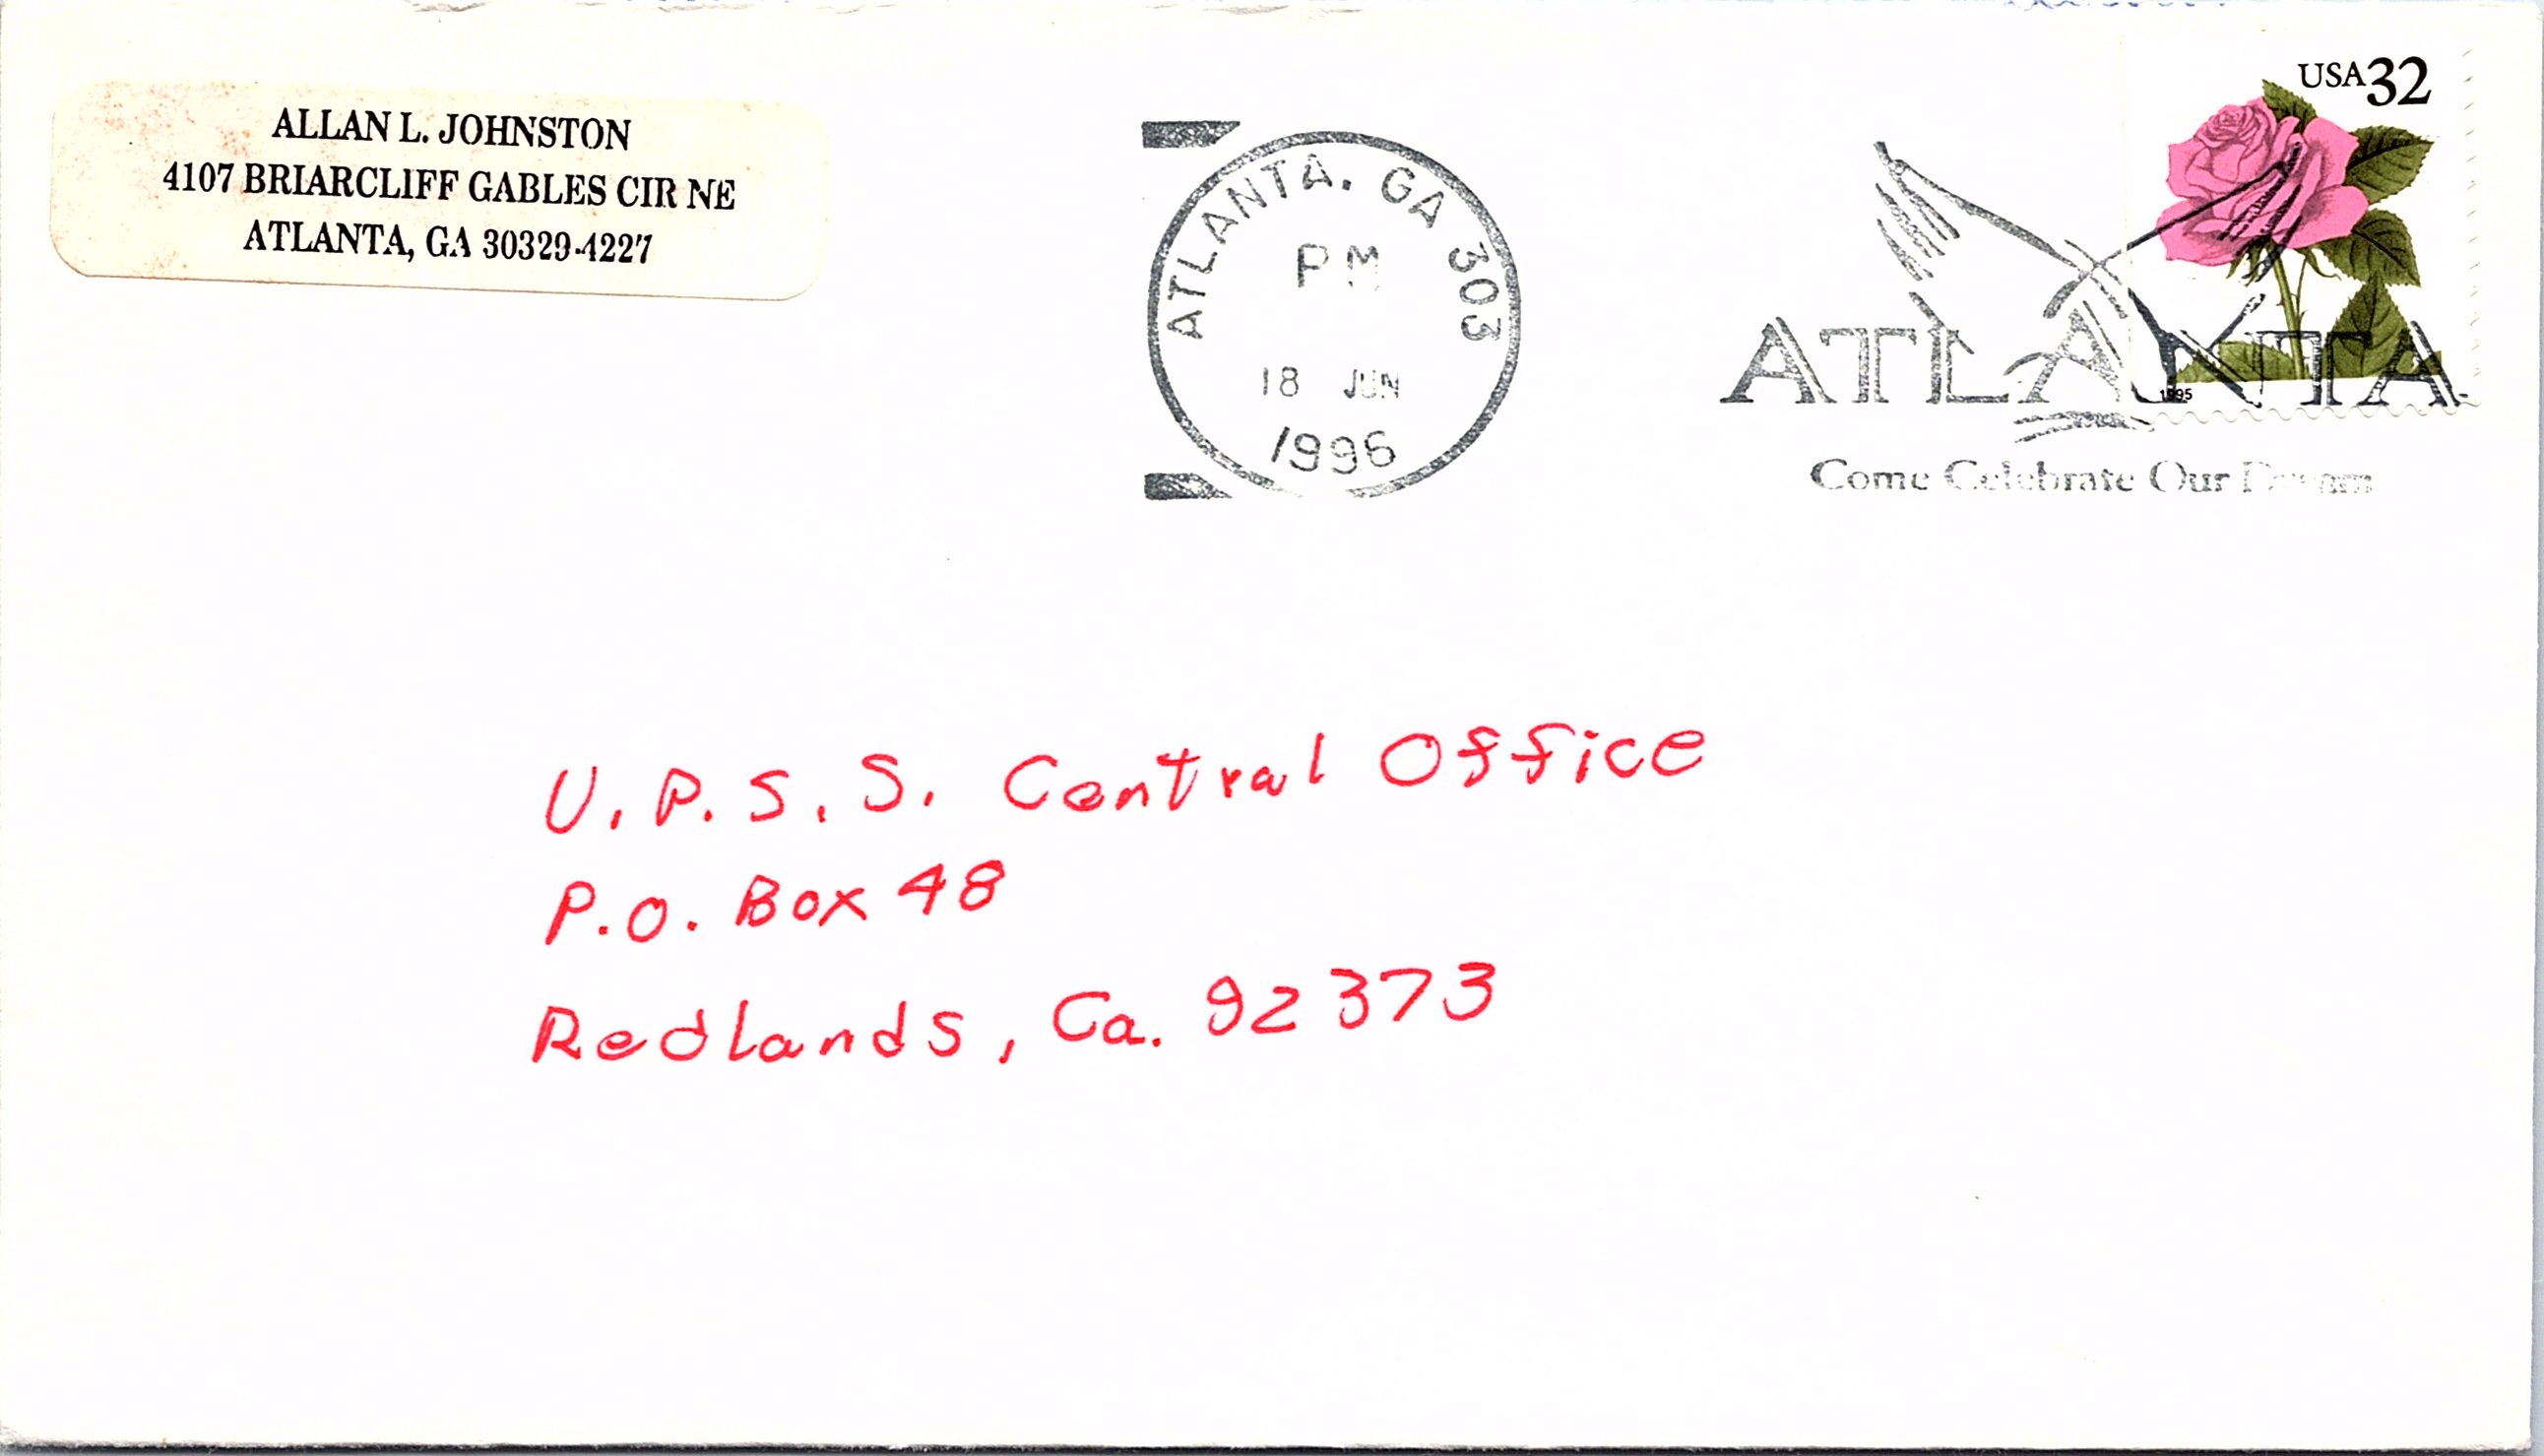 ALLAN L. JOHNSTON
4107 BRIARCLIFF GABLES CIR NE
ATLANTA, GA 30329-4227
ATLANTA, GA 303
PM
18 JUN
1996
USA32
1995
ATLANTA
Come Celebrate Our Dream
U.P.S.S. Central Office
P.O. Box 48
Redlands, Ca. 92373